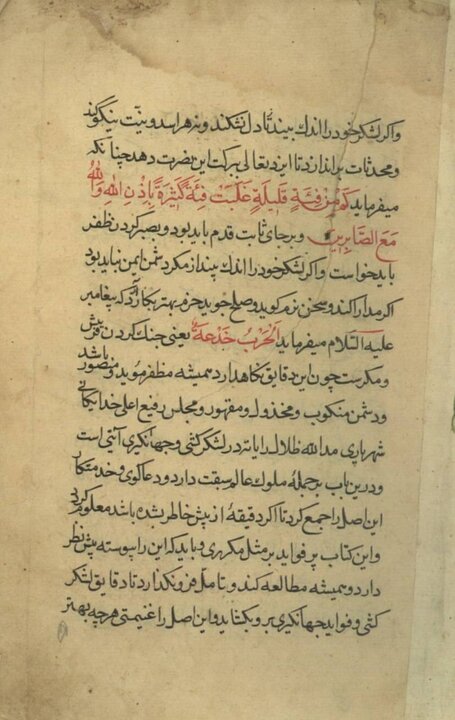 واکر لشکر خود را اندك بیند تا دل نشکند و نهراسد و نیّت نیکو کند
و محدثات براندازد تا ایزد تعالی برکات این نصرت دهد چنانکه
میفرماید کَمْ مِنْ فِئَةٍ قَلِیلَةٍ غَلَبَتْ فِئَةً کَثِیرَةً بِاِذْنِ اللهِ وَاللهُ
مَعَ الصَّابِرِینَ و برجای ثابت قدم باید بود و بصبر کردن ظفر
باید خواست واکر لشکر خود را اندك بیند از مکر دشمن ایمن نباید بود
اکر مدارا کند و سخن نرم کوید و صلح جوید حزم بهتر بکار دارد که پیغامبر
علیه السّلام میفرماید اَلْحَرْبُ خُدْعَةٌ یعنی جنك کردن فریبش
و مکرست چون این دقایق نکاه دارد همیشه مظفر و مؤید و منصور باشد
و دشمن منکوب و مخذول و مقهور و مجلس رفیع اعلی خدایکانی
شهریاری مدالله ظلاله رایاته در لشکرکشی و جهانکیری آیتی است
و درین باب بر جملهٔ ملوك عالم سبقت دارد و دعاکوی و خدمتکار
این اصل را جمع کرد تا اکر دقیقهٔ از پیش خاطر شده باشد معلوم کردد
و این کتاب پر فواید بر مثل مکرری و باید که این را پیوسته پیش نظر
دارد و همیشه مطالعه کند و تامل فرو نکذارد تا دقایق لشکر
کشی و فواید جهانکیری برو بکشاید و این اصل را غنیمتی هرچه بهتر